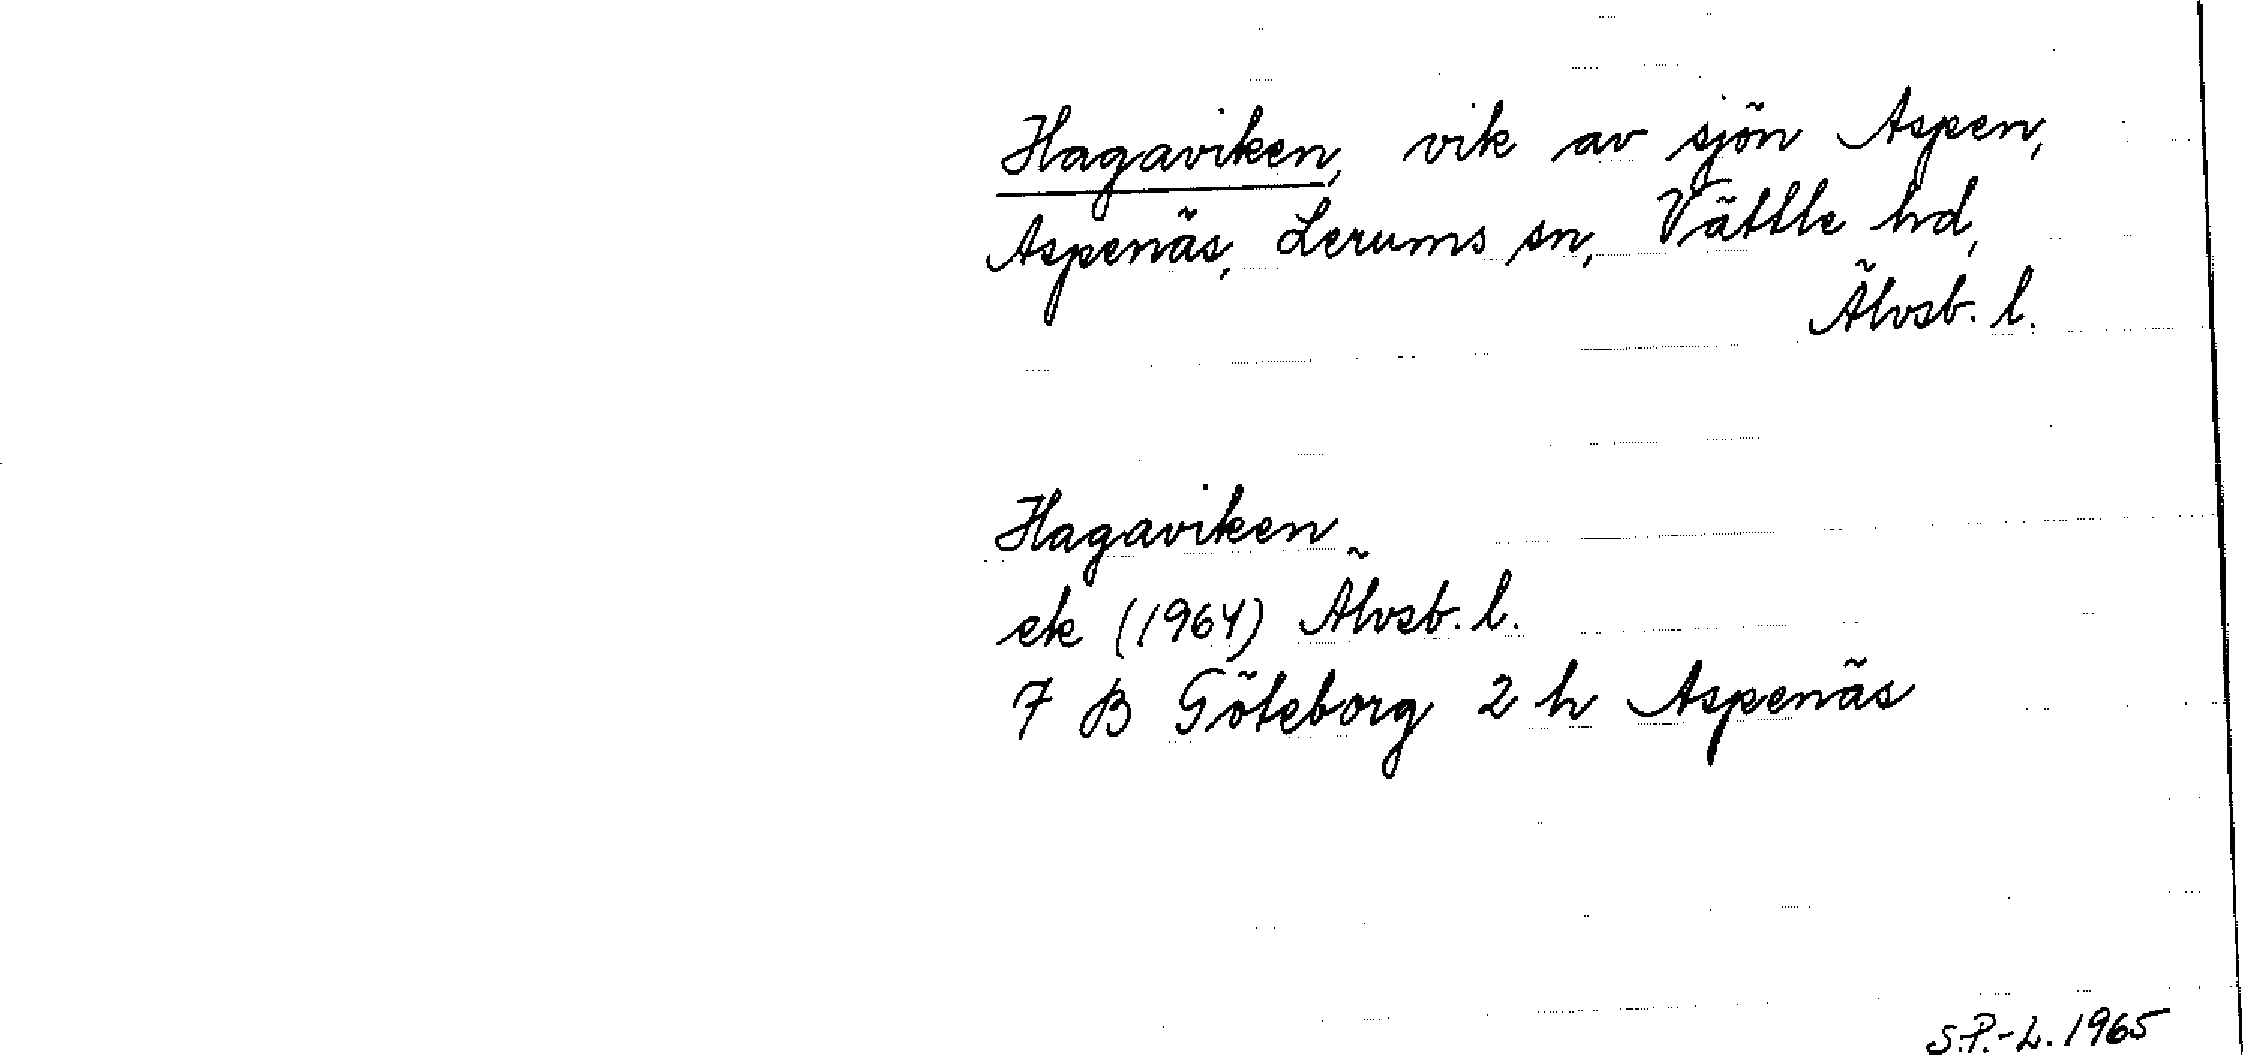 Hagaviken, vik av sjön Aspen,
Aspenäs, Lerums sn, Vättle hd,
Älvsb. l.
Hagaviken
ek (1964) Älvsb. l.
7 B Göteborg 2 h Aspenäs
S.P.-L. 1965